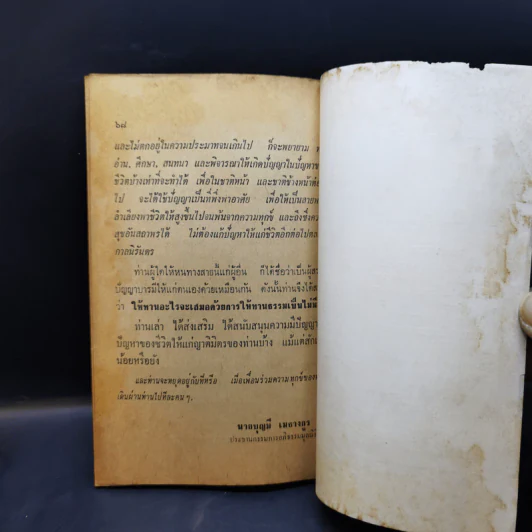 ๖๘
และไม่ตกอยู่ในความประมาทจนเกินไป ก็จะพยายาม
อ่าน, ศึกษา, สนทนา และพิจารณาให้เกิดปัญญาในปัญหา
ชีวิตบ้างเท่าที่จะทำได้ เพื่อในชาติหน้า และชาติข้างหน้า
ไป จะได้ใช้ปัญญาเป็นที่พึ่งพาอาศัย เพื่อให้เป็น
ลำเลียงพาชีวิตให้สูงขึ้นไปจนพ้นจากความทุกข์ และถึงซึ่ง
สุขอันสถาพรได้ ไม่ต้องแก้ปัญหาให้แก่ชีวิตอีกต่อไป
กาลนิรันดร
ท่านผู้ใดให้หนทางสายนี้แก่ผู้อื่น ก็ได้ชื่อว่าเป็นผู้
ปัญญาบารมีให้แก่ตนเองด้วยเหมือนกัน ดังนั้นท่านจึงได้
ว่า ให้ทานอะไรจะเสมอด้วยการให้ทานธรรมเป็นไม่มี
ท่านเล่า ได้ส่งเสริม ได้สนับสนุนความมีปัญญา
ปัญหาของชีวิตให้แก่ญาติมิตรของท่านบ้าง แม้แต่สัก
น้อยหรือยัง
และท่านจะหยุดอยู่กับที่หรือ เมื่อเพื่อนร่วมความทุกข์ของ
เดินผ่านท่านไปทีละคน ๆ.
นายบุญมี เมธางกูร